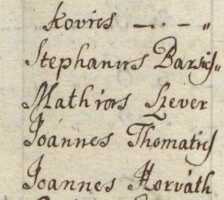 Kovács — · — „
Stephanus Barsics„
Mathias Szever
Joánnes Thomatics
Joannes Horváth